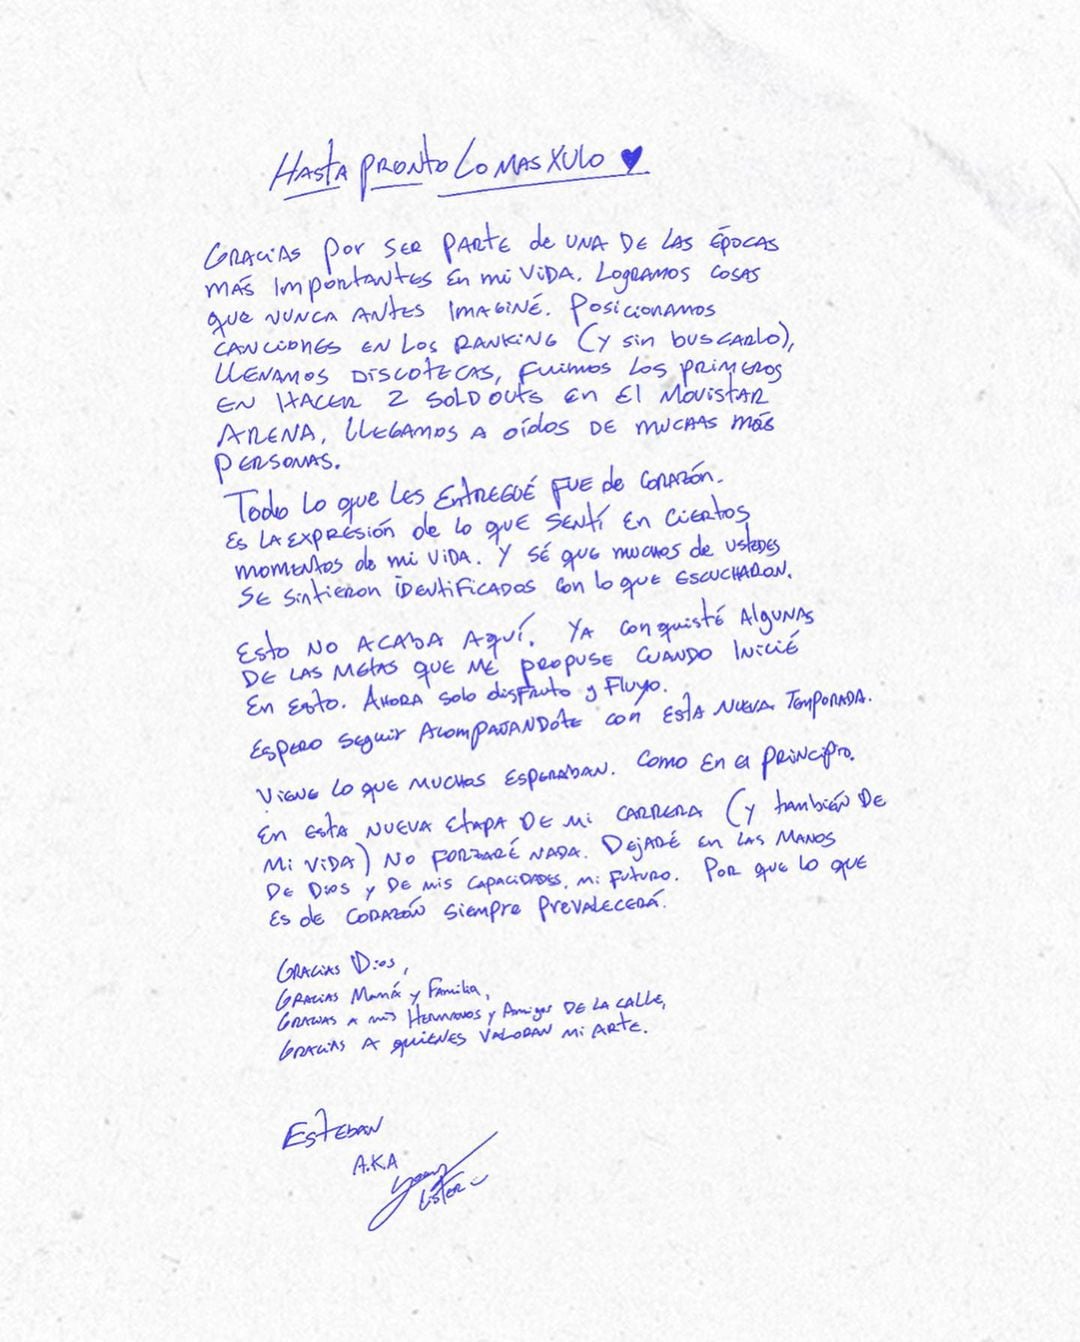 HASTA PRONTO LO MAS XULO ♥
GRACIAS POR SER PARTE de UNA DE LAS ÉPOCAS
MÁS IMPORTANTES EN mi VIDA. LOGRAMOS COSAS
QUE NUNCA ANTES IMAGINÉ. POSICIONAMOS
CANCIONES EN LOS RANKING (Y sin buscarlo),
LLENAMOS DISCOTECAS, FUIMOS LOS PRIMEROS
EN HACER 2 SOLD OUTS EN El MOVISTAR
ARENA, LLEGAMOS A OÍDOS DE MUCHAS MÁS
PERSONAS.
Todo lo que LES ENTREGUÉ FUE de CORAZÓN.
Es LA EXPRESIÓN de lo que SENTÍ EN CIERTOS
MOMENTOS de mi VIDA. Y SÉ QUE MUCHOS de USTEDES
SE SINTIERON IDENTIFICADOS con lo que ESCUCHARON.
ESTO NO ACABA AQUÍ. YA CONQUISTÉ ALGUNAS
DE LAS METAS QUE ME PROPUSE CUANDO INICIÉ
EN ESTO. AHORA SOLO DISFRUTO y FLUYO.
ESPERO SEGUIR ACOMPAÑANDOTE con ESTA NUEVA TEMPORADA.
VIENE LO QUE MUCHOS ESPERABAN. COMO EN El PRINCIPIO.
EN ESTA NUEVA ETAPA DE Mi CARRERA (y también DE
Mi VIDA) NO FORZARÉ NADA. DEJARÉ EN LAS MANOS
DE DIOS y DE MIS CAPACIDADES, mi FUTURO. POR QUE LO QUE
ES de CORAZÓN SIEMPRE PREVALECERÁ.
GRACIAS DIOS,
GRACIAS Mamá y Familia,
GRACIAS A mis HERMANOS y Amigos DE LA CALLE,
GRACIAS A QUIENES VALORAN Mi ARTE.
ESTEBAN
A.K.A
Young
Lister